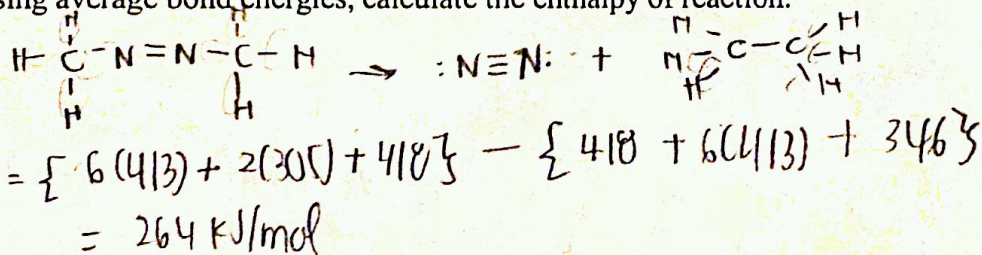 sing average bond energies, calculate the enthalpy of reaction.
H H M H
H C - N = N - C - H → :N≡N: + H C - C - H
H H H H
= { 6(413) + 2(305) + 418} - { 418 + 6(413) + 346}
= 264 kJ/mol